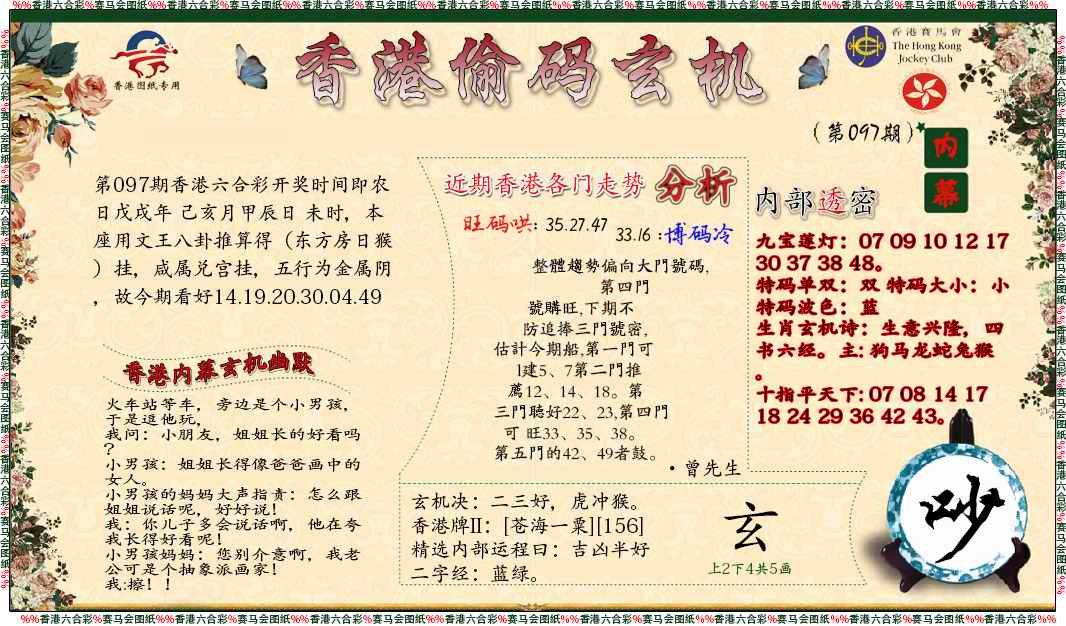 %%香港六合彩%赛马会图纸%%香港六合彩%赛马会图纸%%香港六合彩%赛马会图纸%%香港六合彩%赛马会图纸%%香港六合彩%赛马会图纸%%香港六合彩%赛马会图纸%%香港六合彩%%
香港图纸专用
香港偷码玄机
香港賽馬會
The Hong Kong
Jockey Club
(第097期)
内
幕
第097期香港六合彩开奖时间即农
日戊戌年 己亥月甲辰日 未时，本
座用文王八卦推算得（东方房日猴
）挂，咸属兑宫挂，五行为金属阴
，故今期看好14.19.20.30.04.49
香港内幕玄机幽默
火车站等车，旁边是个小男孩，
于是逗他玩，
我问：小朋友，姐姐长的好看吗
？
小男孩：姐姐长得像爸爸画中的
女人。
小男孩的妈妈大声指责：怎么跟
姐姐说话呢，好好说！
我：你儿子多会说话啊，他在夸
我长得好看呢！
小男孩妈妈：您别介意啊，我老
公可是个抽象派画家！
我:擦！！
近期香港各门走势 分析
旺码哄: 35.27.47
33.16 :博码冷
整體趨勢偏向大門號碼,
第四門
號購旺,下期不
防追捧三門號密,
估計今期船,第一門可
l建5、7第二門推
薦12、14、18。第
三門聴好22、23,第四門
可 旺33、35、38。
第五門的42、49者鼓。
·曾先生
玄机决：二三好，虎冲猴。
香港牌II：[苍海一粟][156]
精选内部运程日：吉凶半好
二字经：蓝绿。
玄
上2下4共5画
内部透密
九宝莲灯：07 09 10 12 17
30 37 38 48。
特码单双：双 特码大小：小
特码波色：蓝
生肖玄机诗：生意兴隆，四
书六经。主: 狗马龙蛇兔猴
。
十指平天下: 07 08 14 17
18 24 29 36 42 43。
吵
%%香港六合彩%赛马会图纸%%香港六合彩%赛马会图纸%%香港六合彩%赛马会图纸%%香港六合彩%赛马会图纸%%香港六合彩%赛马会图纸%%香港六合彩%赛马会图纸%%香港六合彩%%